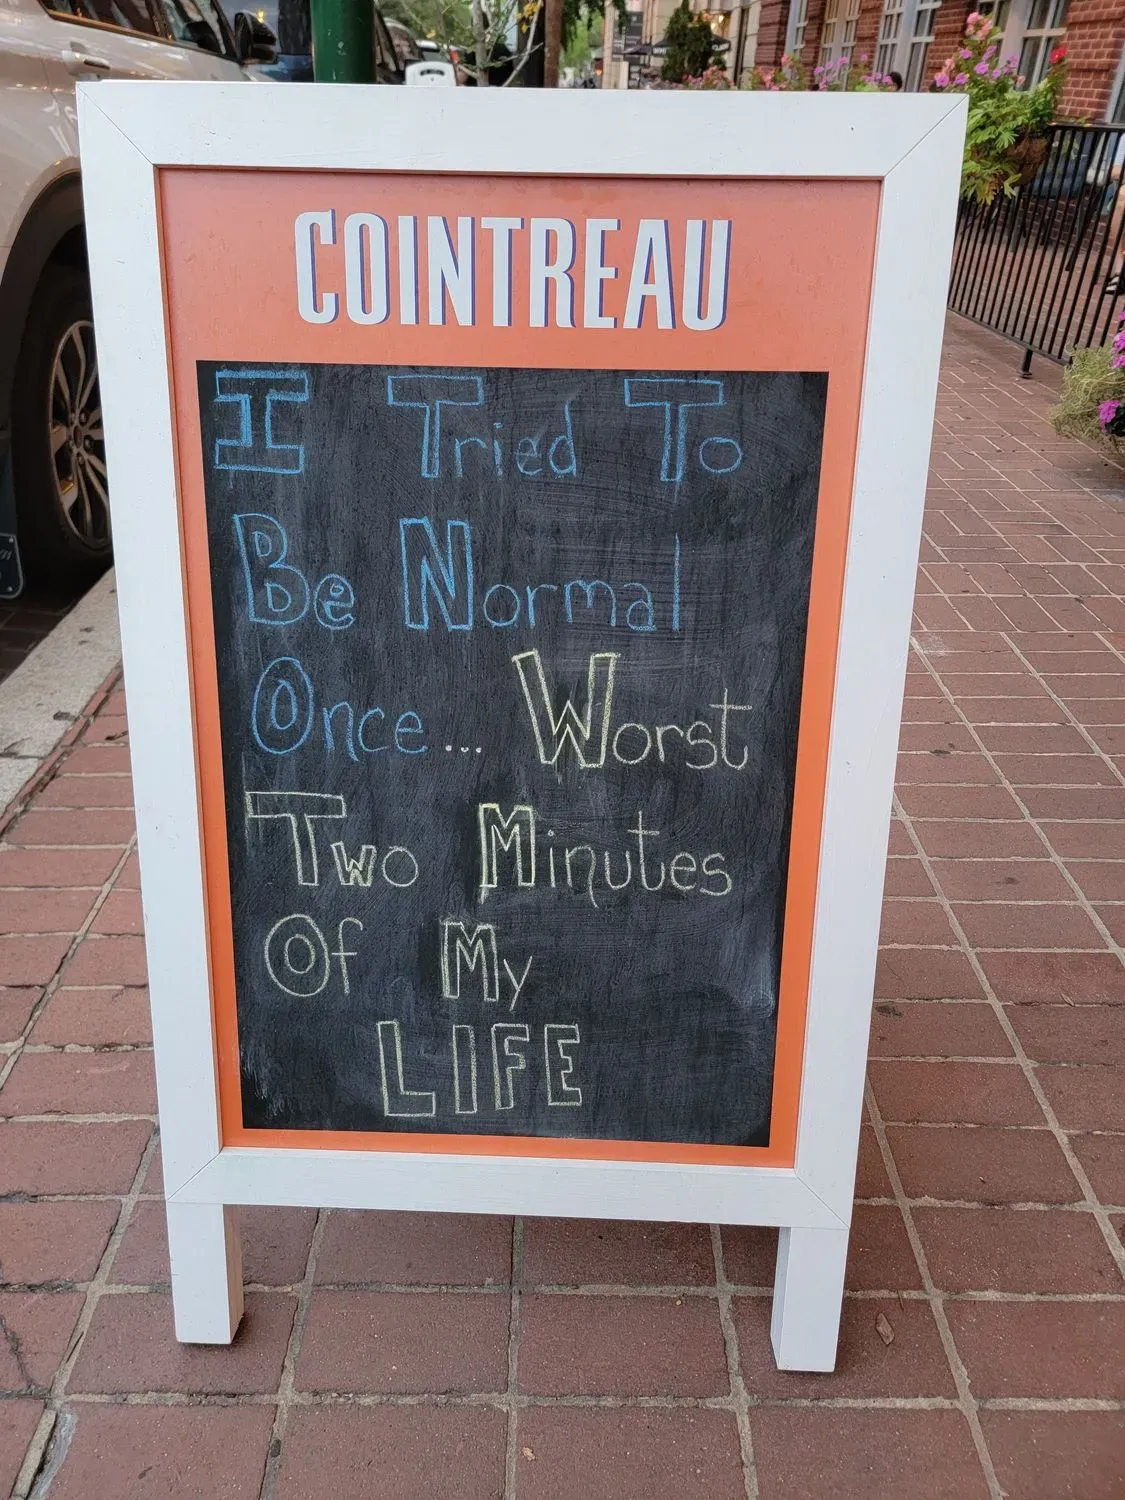 COINTREAU
I Tried To
Be Normal
Once... Worst
Two Minutes
Of My
LIFE